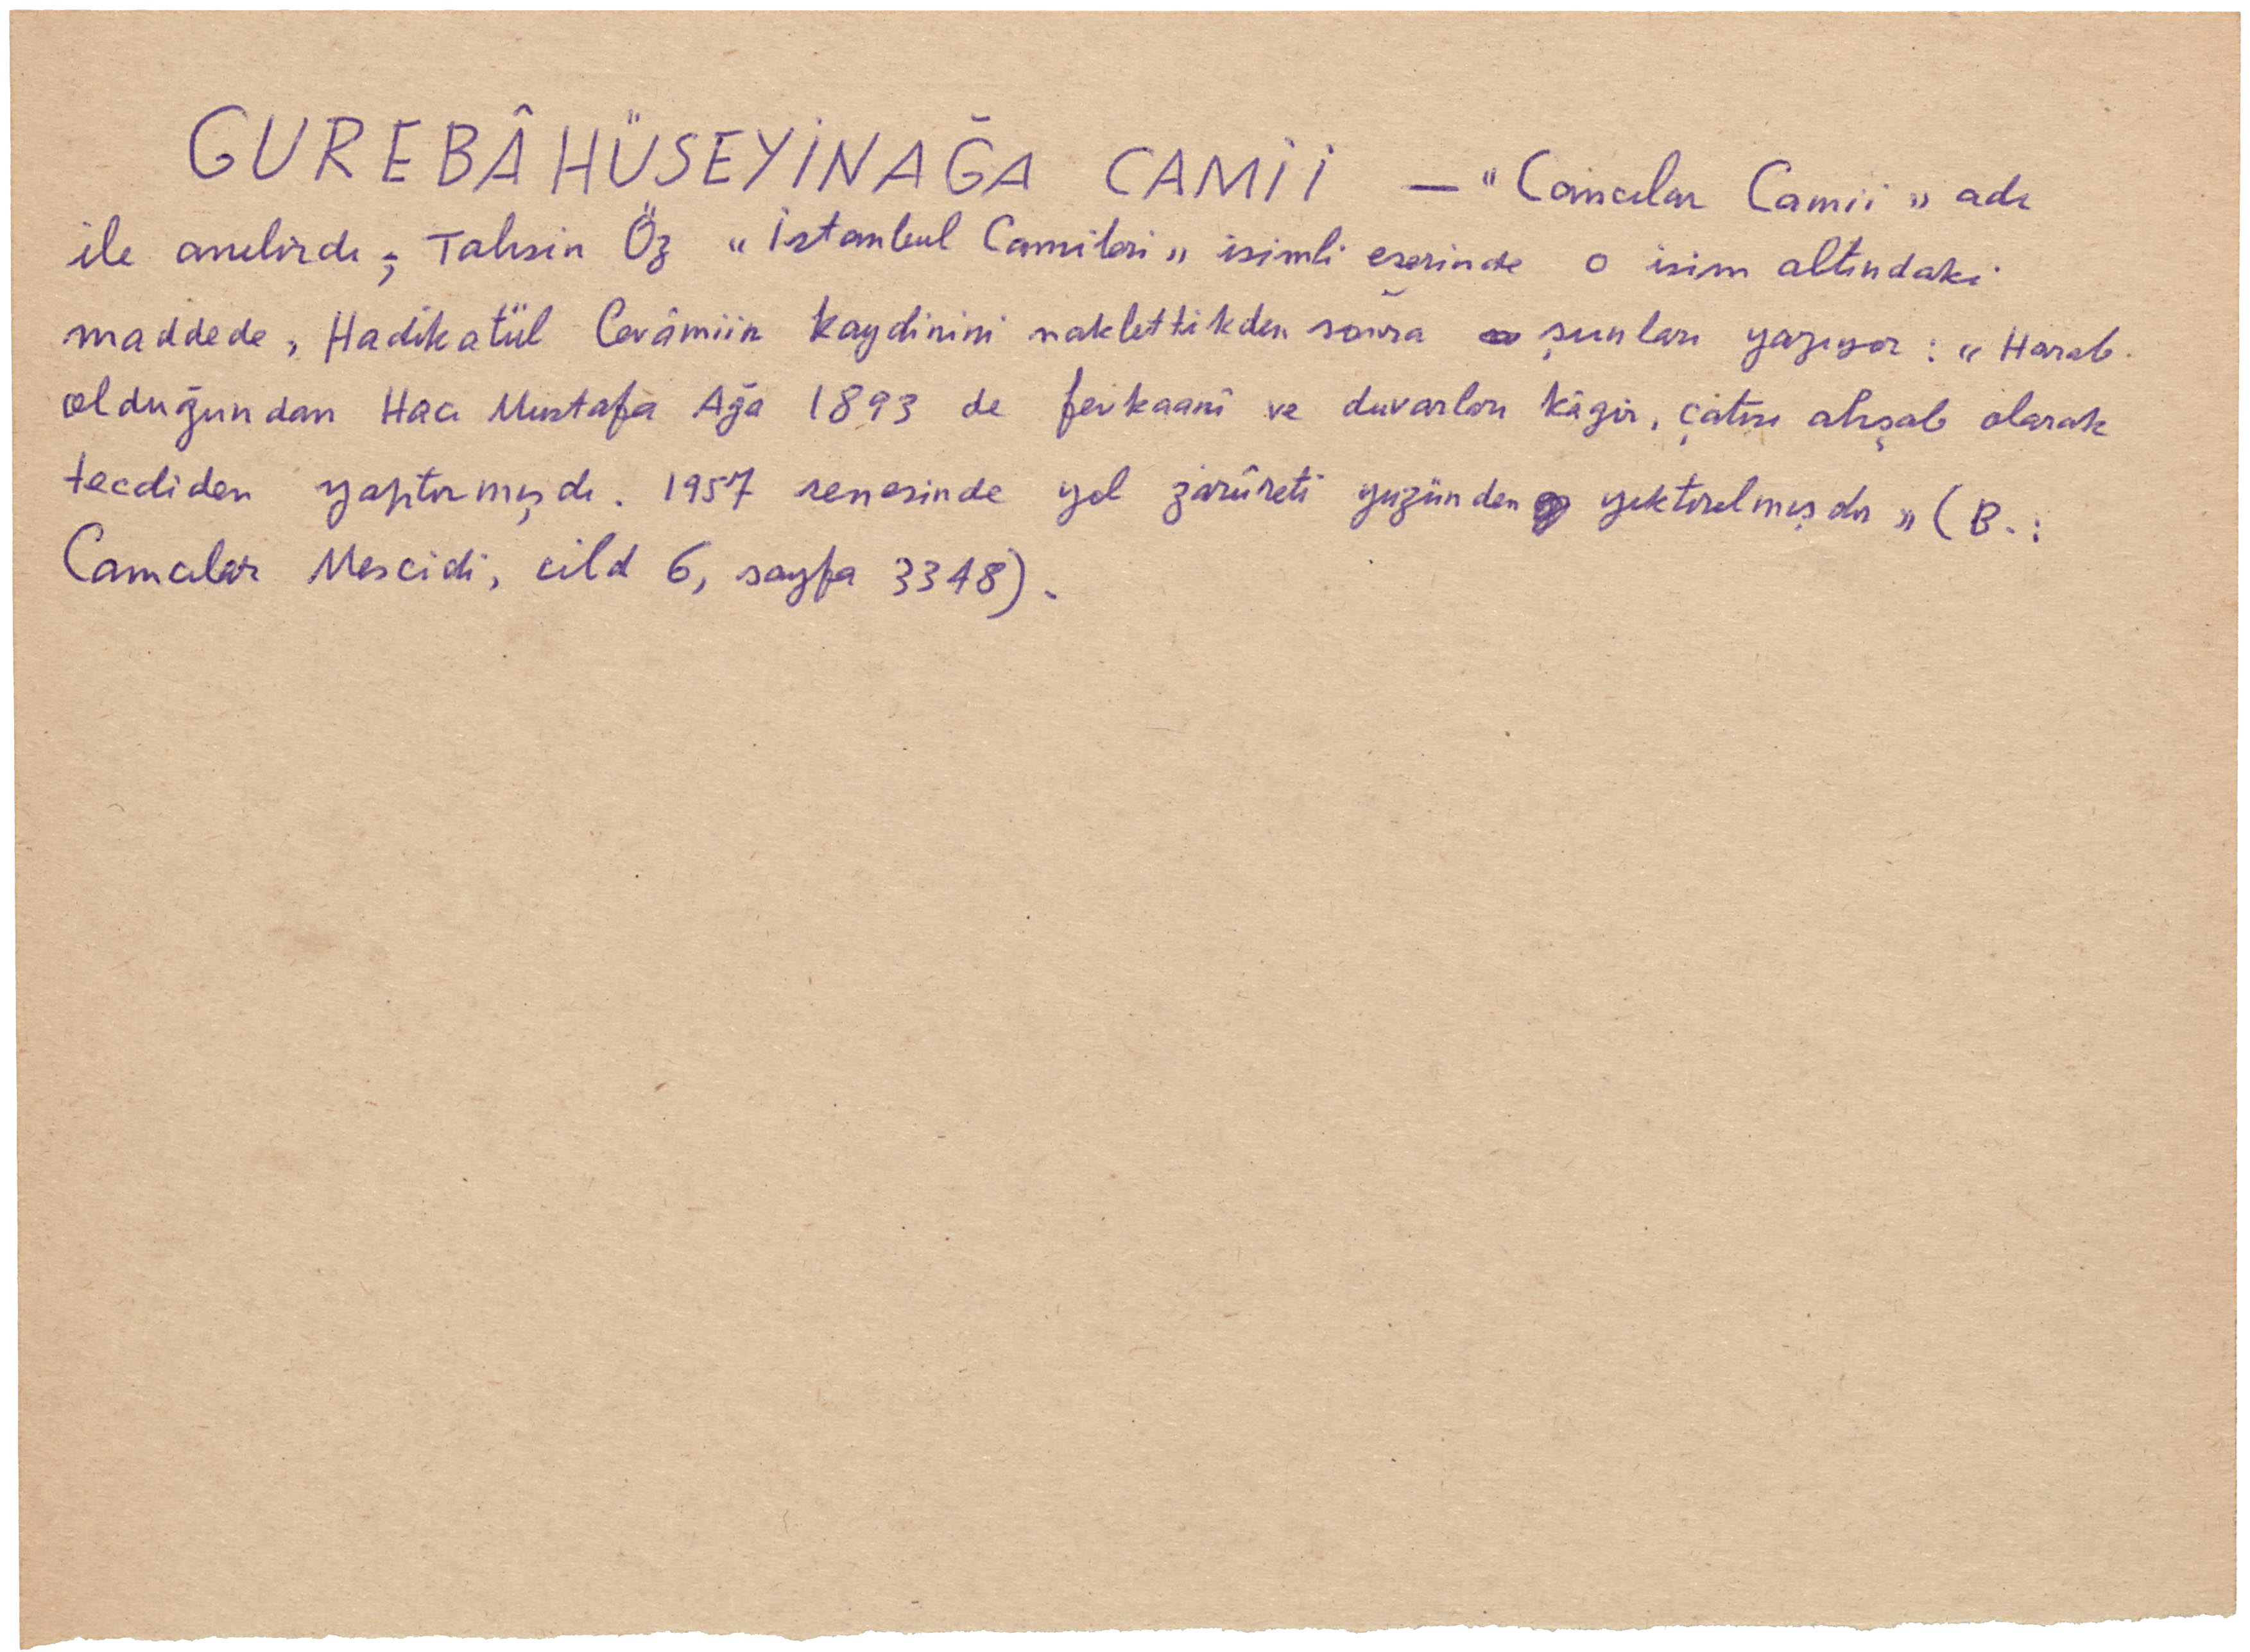 GUREBÂHÜSEYİNAĞA CAMİİ — "Camcılar Camii" adı
ile anılırdı; Tahsin Öz "İstanbul Camileri" isimli eserinde o isim altındaki
maddede, Hadikatül Cevâmiin kaydinini naklettikden sonra şunları yazıyor: "Harab
olduğundan Hacı Mustafa Ağa 1893 de fevkaanî ve duvarları kâgir, çatısı ahşab olarak
tecdiden yaptırmışdı. 1957 senesinde yol zarûreti yüzünden yıktırılmışdır" (B.:
Camcılar Mescidi, cild 6, sayfa 3348).